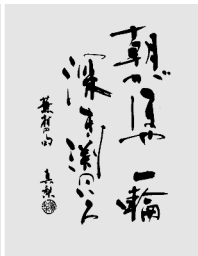 朝がほや一輪
深き淵のいろ
蕪村の句
真梨